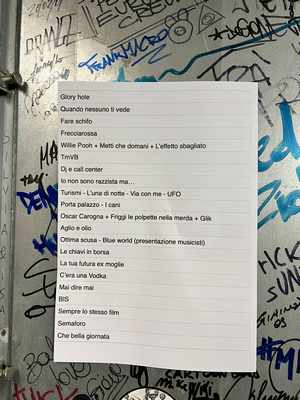 Glory hole
Quando nessuno ti vede
Fare schifo
Frecciarossa
Willie Pooh + Metti che domani + L'effetto sbagliato
TmVB
Dj e call center
Io non sono razzista ma...
Turismi - L'una di notte - Via con me - UFO
Porta palazzo - I cani
Oscar Carogna + Friggi le polpette nella merda + Glik
Aglio e olio
Ottima scusa - Blue world (presentazione musicisti)
Le chiavi in borsa
La tua futura ex moglie
C'era una Vodka
Mai dire mai
BIS
Sempre lo stesso film
Semaforo
Che bella giornata